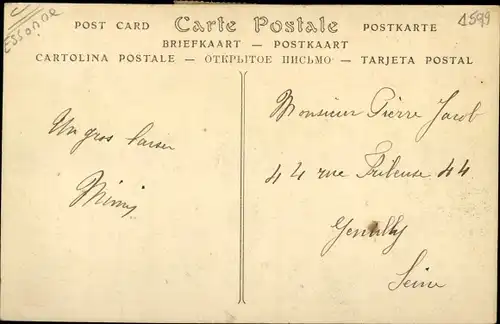 Essonne
1599
POST CARD Carte Postale POSTKARTE
BRIEFKAART — POSTKAART
CARTOLINA POSTALE — ОТКРЫТОЕ ПИСЬМО — TARJETA POSTAL
Un gros baiser
Mimi
Monsieur Pierre Jacob
44 rue 44
Gentilly
Seine